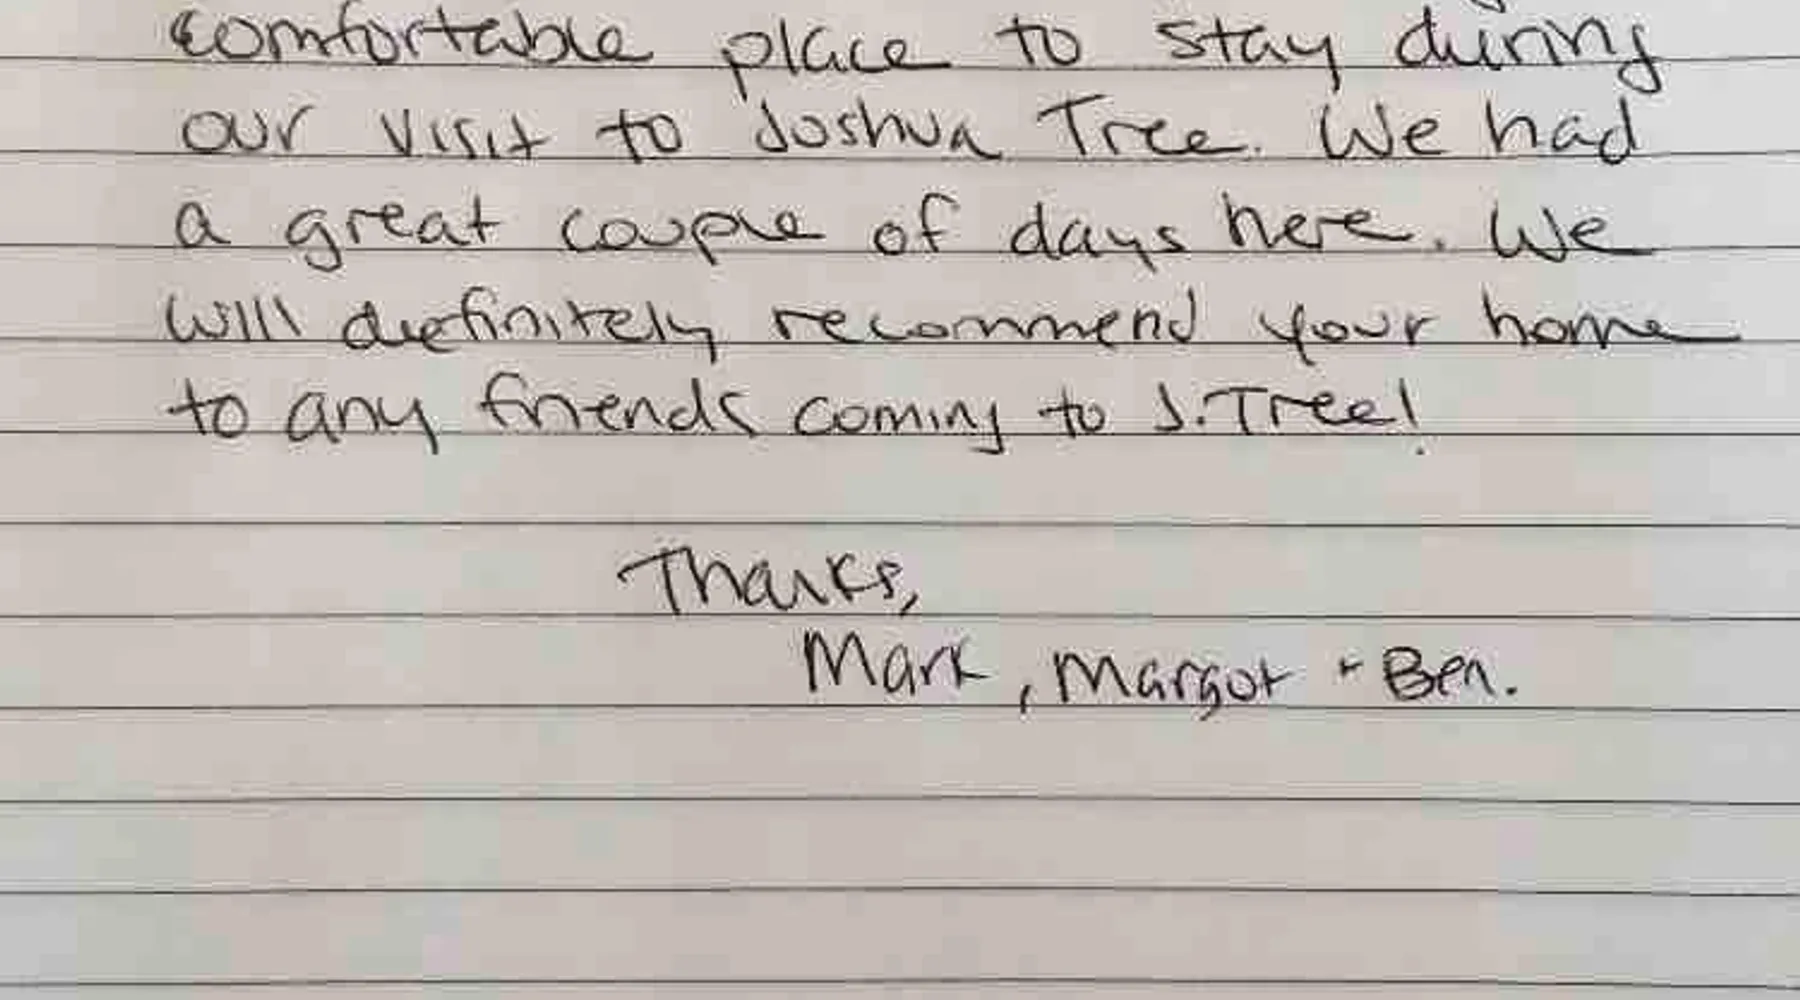 comfortable place to stay during
our visit to Joshua Tree. We had
a great couple of days here. We
will definitely recommend your home
to any friends coming to J.Tree!
Thanks,
Mark, Margot + Ben.